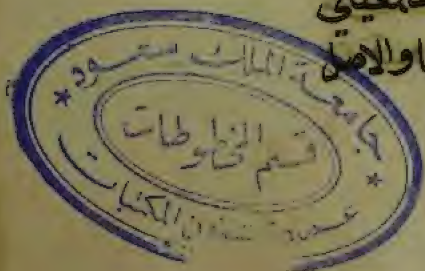 والاصل
* جامعة الملك سعود *
قسم المخطوطات
عمادة شؤون المكتبات